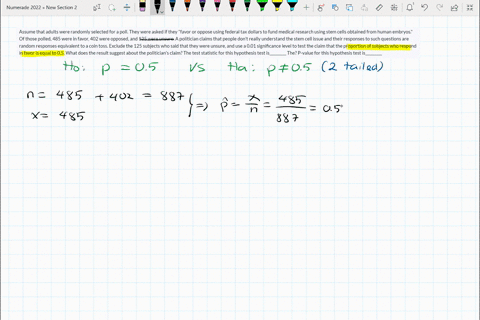 Numerade 2022 » New Section 2
Assume that adults were randomly selected for a poll. They were asked if they "favor or oppose using federal tax dollars to fund medical research using stem cells obtained from human embryos."
Of those polled, 485 were in favor, 402 were opposed, and 125 were unsure. A politician claims that people don't really understand the stem cell issue and their responses to such questions are
random responses equivalent to a coin toss. Exclude the 125 subjects who said that they were unsure, and use a 0.01 significance level to test the claim that the proportion of subjects who respond
in favor is equal to 0.5. What does the result suggest about the politician's claim? The test statistic for this hypothesis test is______. The? P-value for this hypothesis test is______.
Ho: p = 0.5 vs Ha: p ≠ 0.5 (2 tailed)
n = 485 + 402 = 887
x = 485
} => p̂ = x/n = 485/887 = 0.5